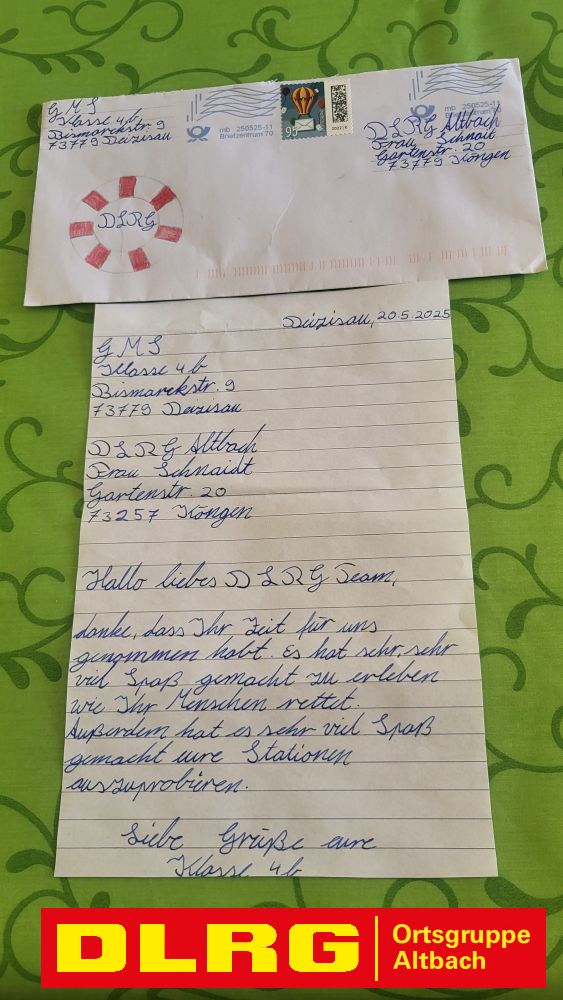 G M S
Klasse 4b
Bismarckstr. 9
73779 Deizisau
mb 250525-11
Briefzentrum 70
95
mb 250525-11
Briefzentrum 70
DLRG Altbach
Frau Schnait
Gartenstr. 20
73779 Köngen
DLRG
Deizisau, 20.5.2025
G M S
Klasse 4b
Bismarckstr. 9
73779 Deizisau
DLRG Altbach
Frau Schnaidt
Gartenstr. 20
73257 Köngen
Hallo liebes DLRG Team,
danke, dass Ihr Zeit für uns
genommen habt. Es hat sehr, sehr
viel Spaß gemacht zu erleben
wie Ihr Menschen rettet.
Außerdem hat es sehr viel Spaß
gemacht eure Stationen
auszuprobieren.
Liebe Grüße eure
Klasse 4b
DLRG
Ortsgruppe
Altbach